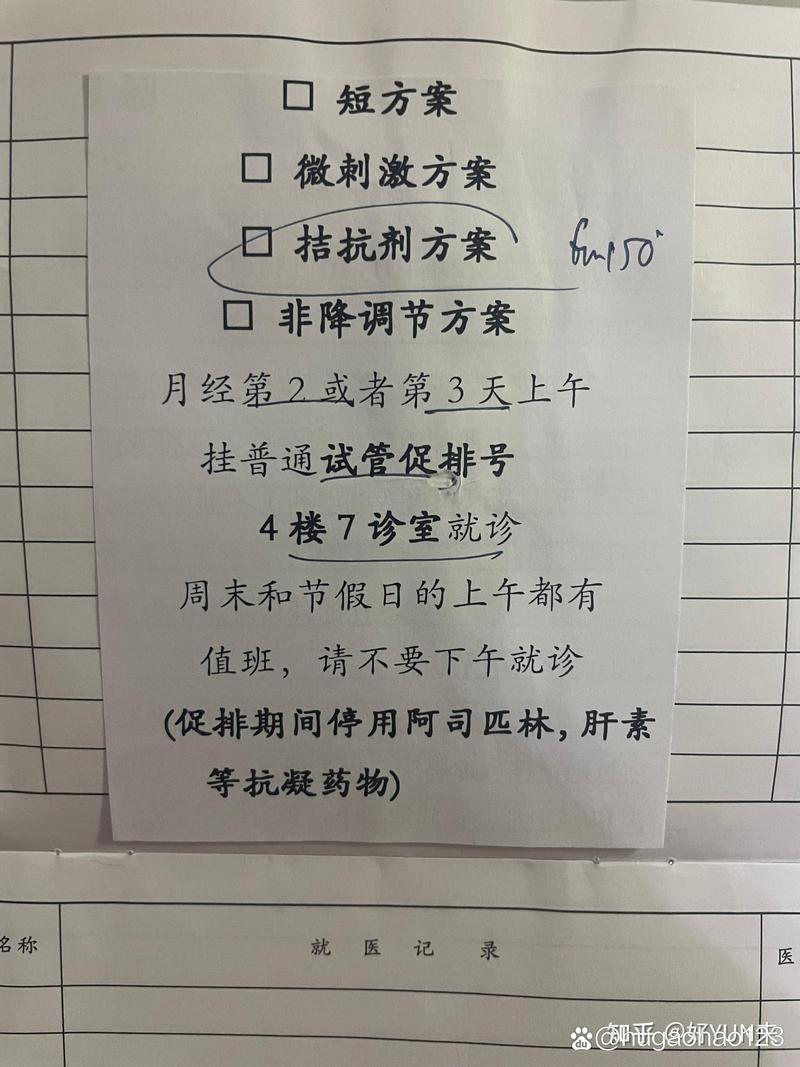 □ 短方案
□ 微刺激方案
□ 拮抗剂方案
□ 非降调节方案
月经第2或者第3天上午
挂普通试管促排号
4楼7诊室就诊
周末和节假日的上午都有
值班，请不要下午就诊
(促排期间停用阿司匹林，肝素
等抗凝药物)
名称 就医记录 医
知乎 @好YUM来
@hugaohao123